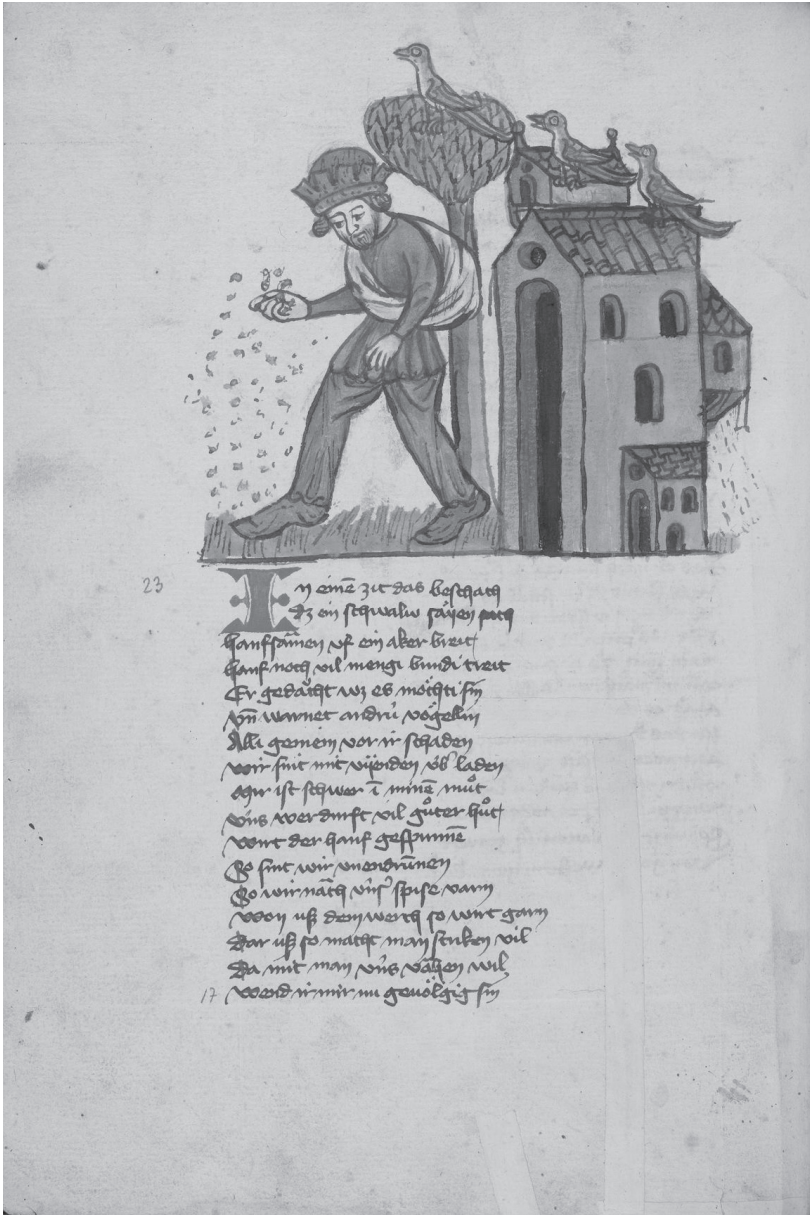 23
In einē zit das beschach
dz ein schwalw säÿen sach
hanfsāmen vf ein aker breit
hanf noch vil mengi bündi treit
Er gedācht wz es möchti sin
vn̄ warnet andrů vögellin
Alli gemein vor ir schaden
wir sint mit vÿenden vb' laden
Mir ist schwer ī minē můt
vns wer durft vil gůter hůt
wirt der hanf gespunnē
So sint wir vnendrūnen
So wir nāch vnſ' spise varn
won uß dem werch so wirt garn
Dar uß so macht man striken vil
Da mit man vns vāhen wil
17 wend ir mir nu gevölgig sin